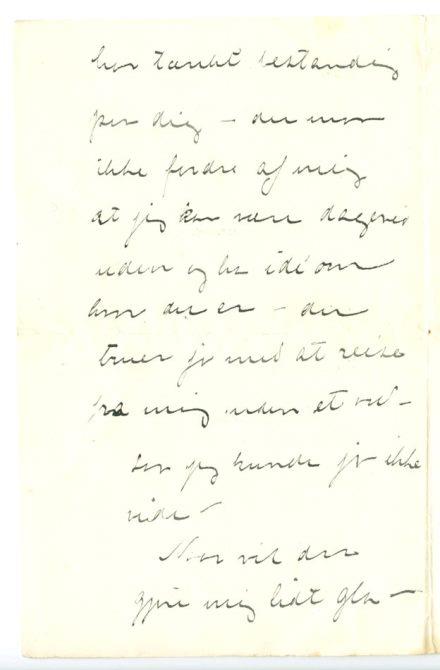 har tænkt bestandig
paa dig – du maa
ikke fordre af mig
at jeg kan være dagevis
uden og ha idé om
hvor du er – du
truer jo med at reise
fra mig uden et vel –
saa jeg kunde jo ikke
vide –
Naar vil du
gjøre mig lidt gla –